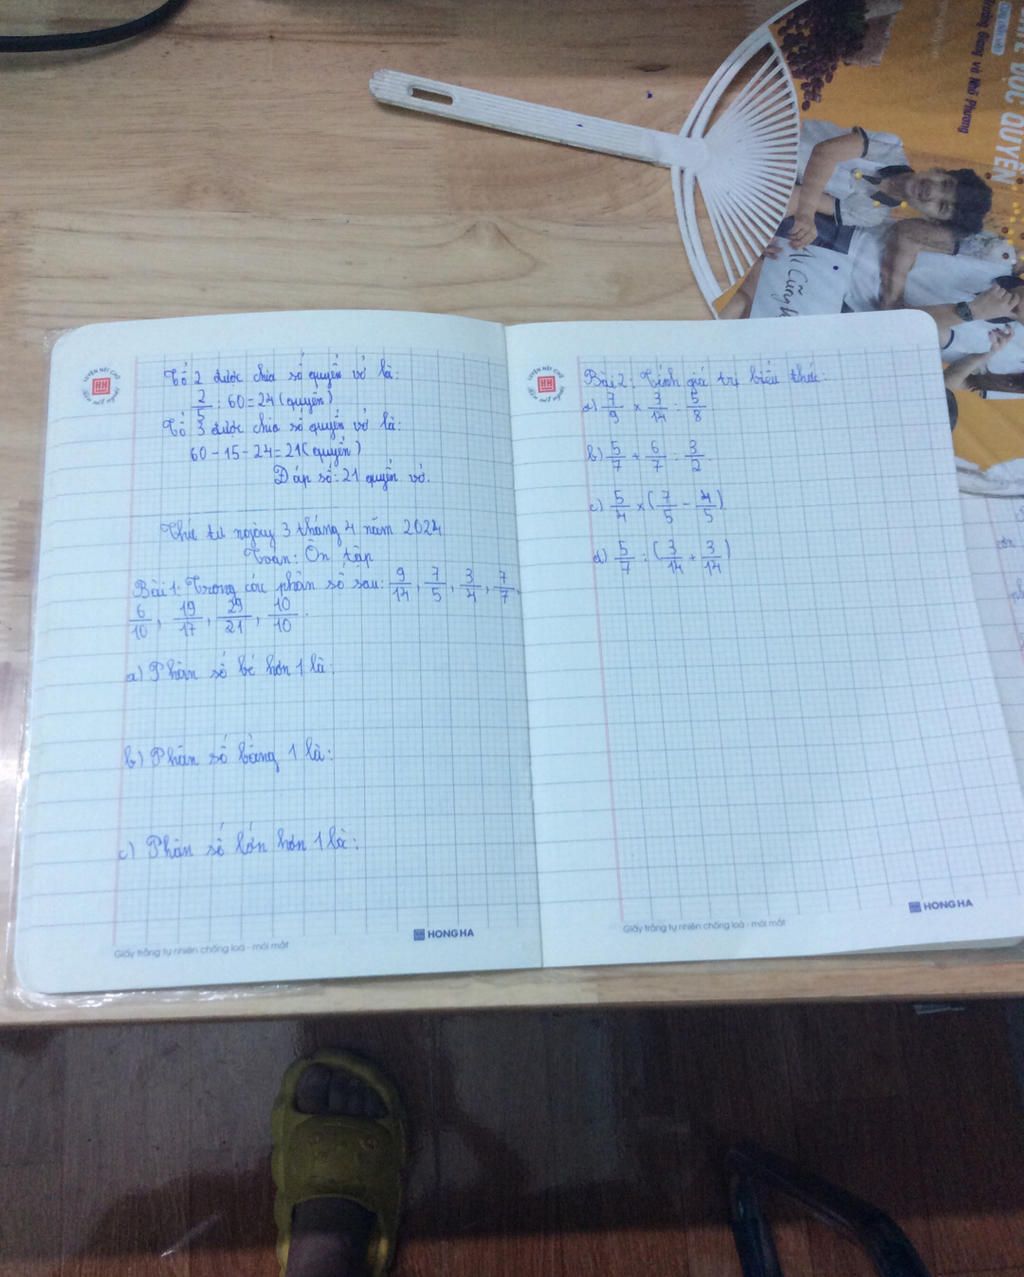 Tổ 2 được chia số quyển vở là:
2/5 : 60 = 24 (quyển)
Tổ 3 được chia số quyển vở là:
60 - 15 - 24 = 21 (quyển)
Đáp số: 21 quyển vở.
Thứ tư ngày 3 tháng 4 năm 2024
Toán: Ôn tập
Bài 1: Trong các phân số sau: 9/14, 7/5, 3/4, 7/7,
6/10, 19/17, 29/21, 10/10.
a) Phân số bé hơn 1 là:
b) Phân số bằng 1 là:
c) Phân số lớn hơn 1 là:
Giấy trắng tự nhiên chống loá - mỏi mắt
HONG HA
Bài 2: Tính giá trị biểu thức:
a) 7/9 × 3/14 : 5/8
b) 5/7 + 6/7 : 3/2
c) 5/4 × (7/5 - 4/5)
d) 5/7 : (3/14 + 3/14)
Giấy trắng tự nhiên chống loá - mỏi mắt
HONG HA
ĐỘC QUYỀN
Trường Giang và Nhã Phương
Cũng